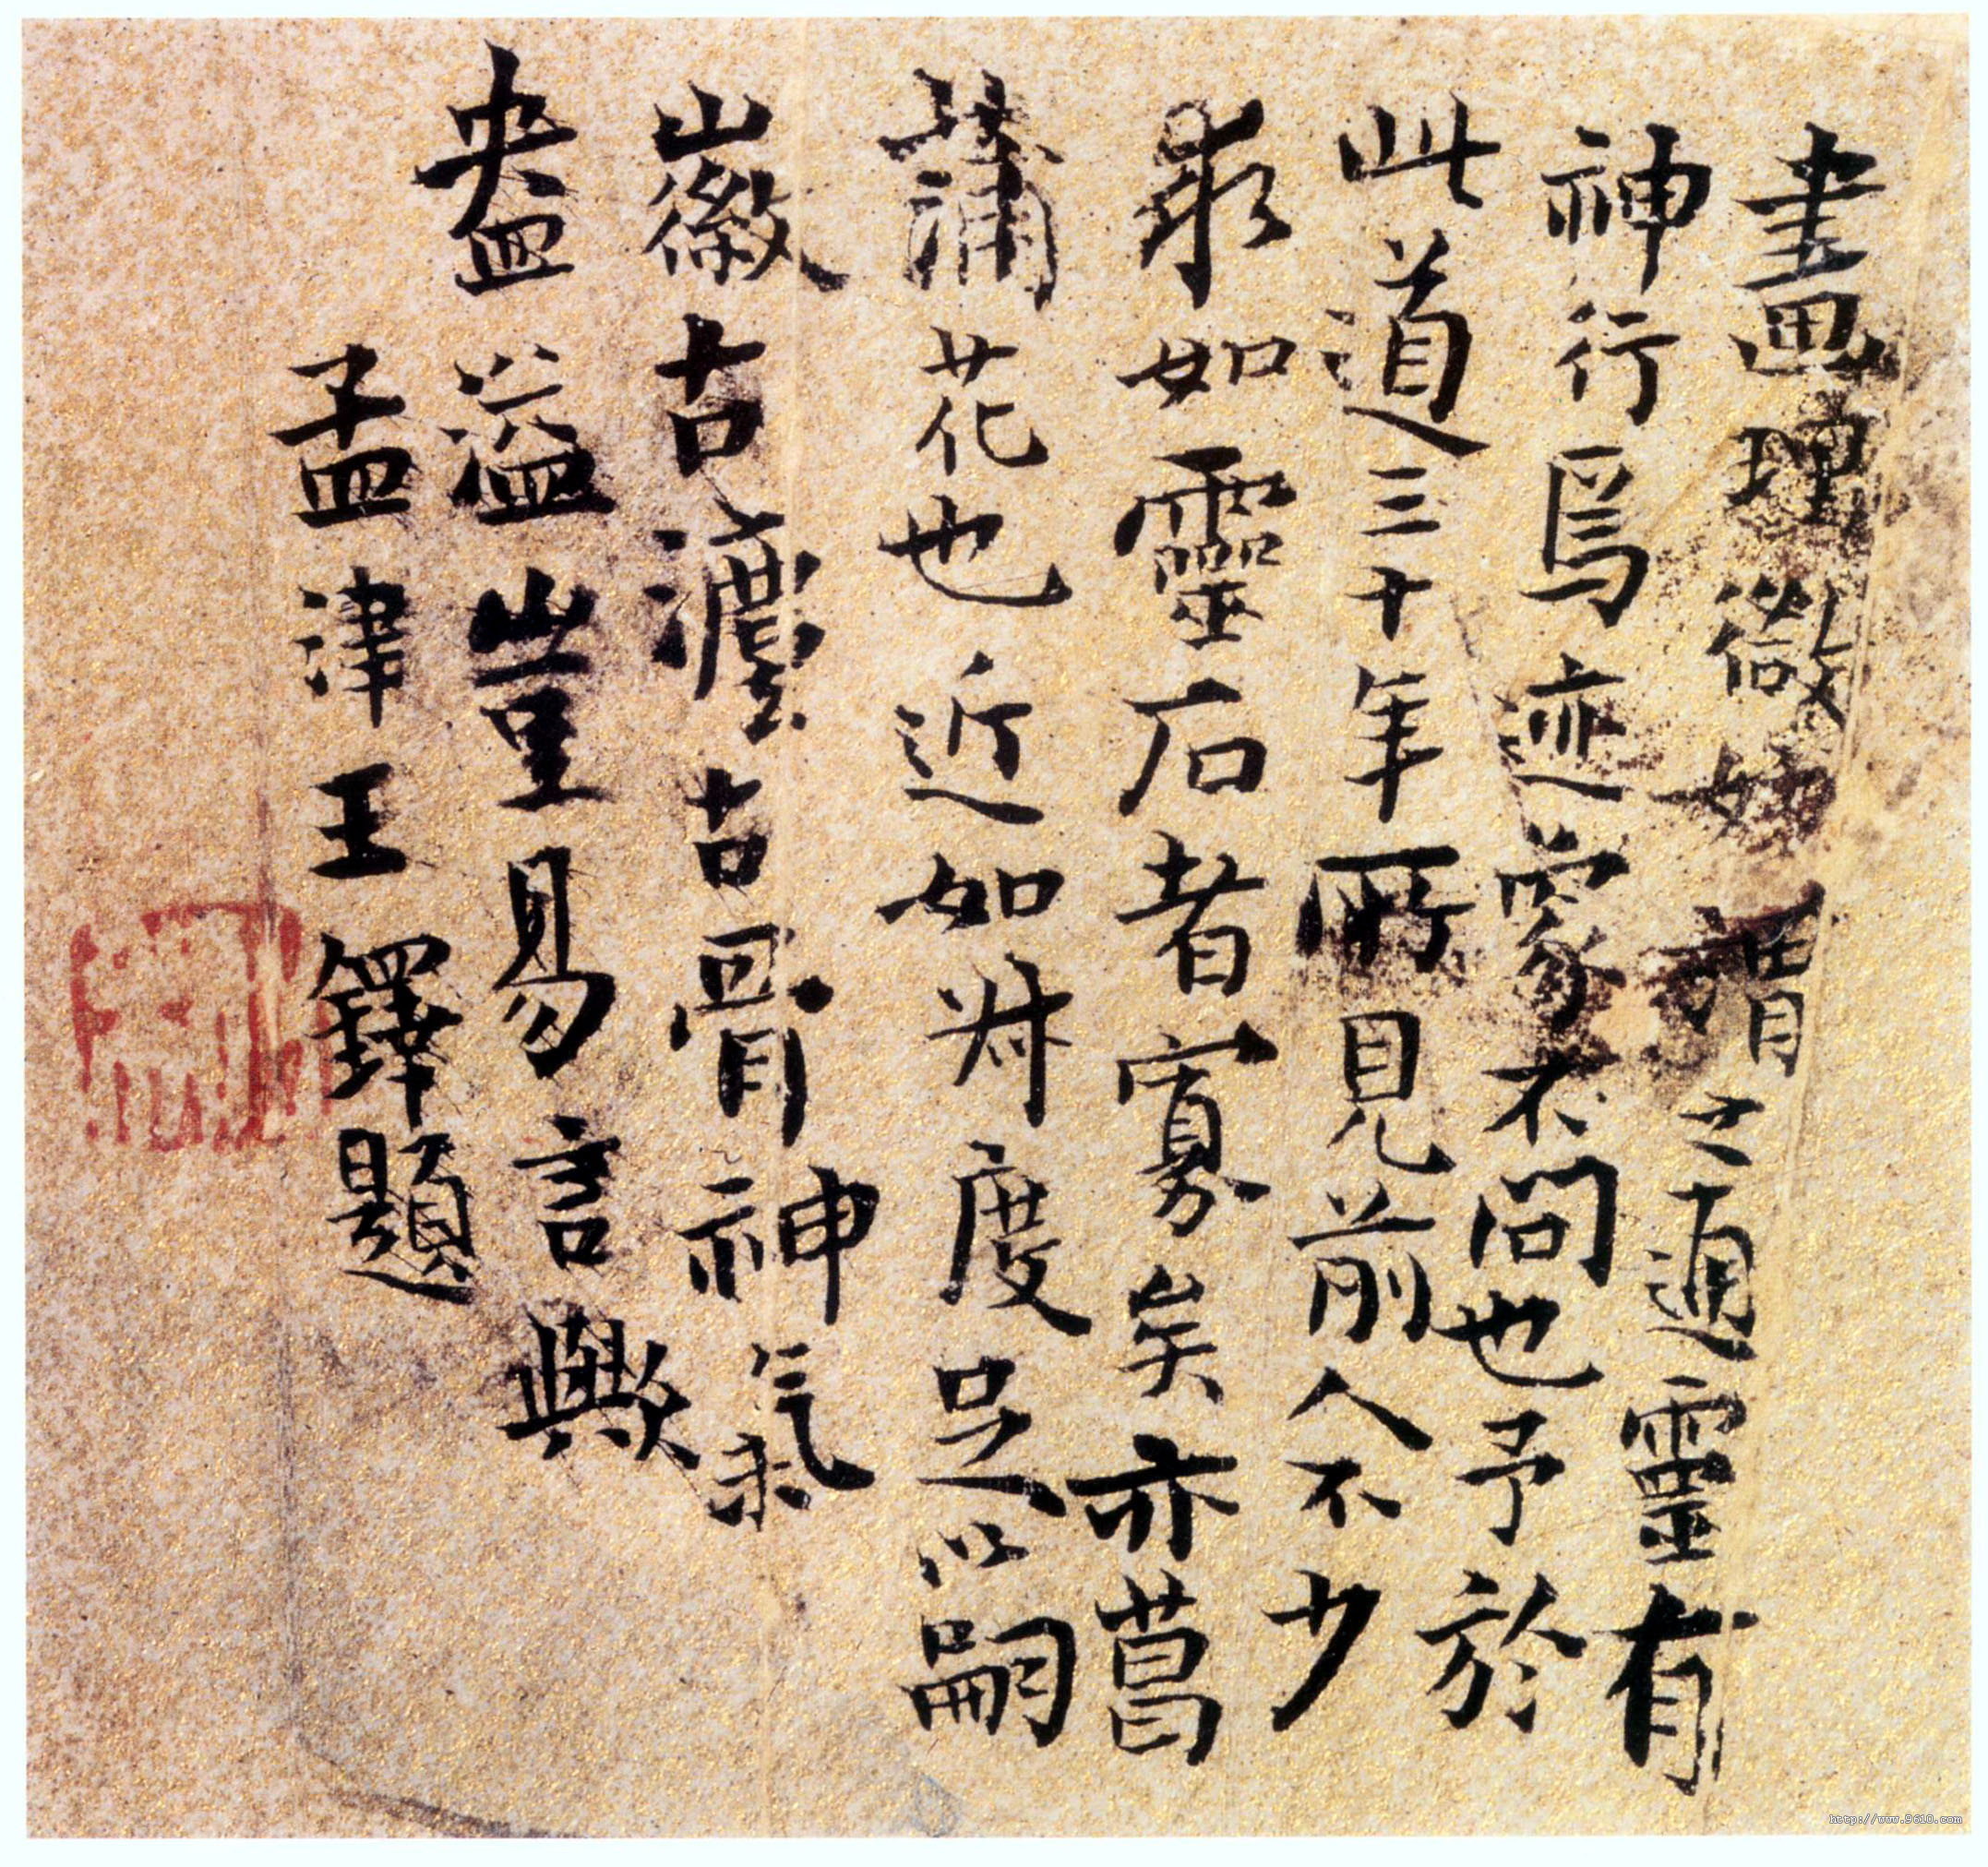 畫理微妙謂之通靈有
神行焉迹象不問也予於
此道三十年所見前人不少
求如靈石者寡矣亦菖
蒲花也近如叔度足以嗣
徽古法古骨神氣
盎溢豈易言歟
孟津王鐸題
http://www.9610.com